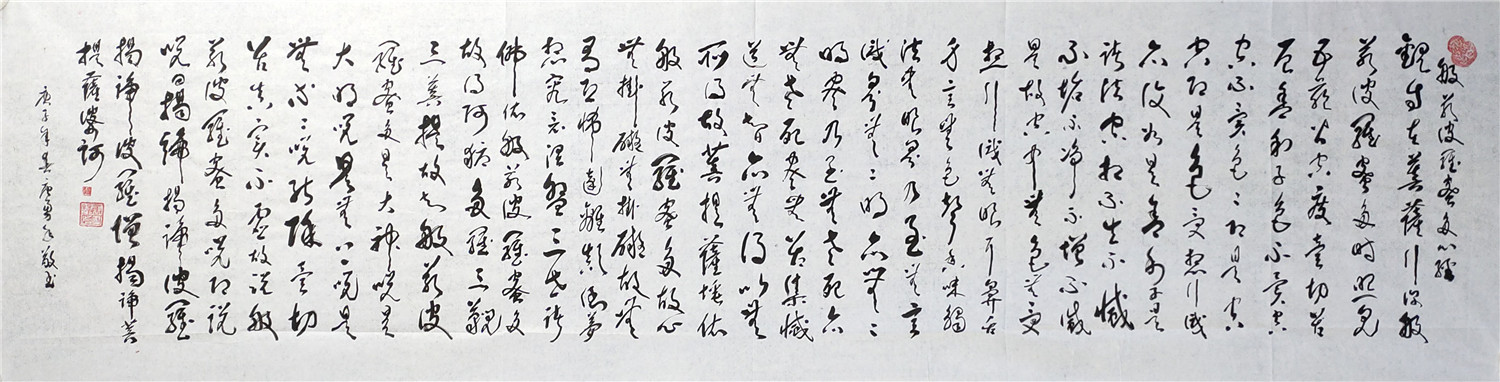 般若波羅蜜多心經
觀自在菩薩行深般
若波羅蜜多時照見
五蘊皆空度一切苦
厄舍利子色不異空
空不異色〻即是空
空即是色受想行識
亦復如是舍利子是
諸法空相不生不滅
不垢不淨不增不減
是故空中無色無受
想行識無眼耳鼻舌
身意無色聲香味觸
法無眼界乃至無意
識界無〻明亦無〻
明盡乃至無老死亦
無老死盡無苦集滅
道無智亦無得以無
所得故菩提薩埵依
般若波羅蜜多故心
無掛礙無掛礙故無
有恐怖遠離顛倒夢
想究竟涅槃三世諸
佛依般若波羅蜜多
故得阿耨多羅三藐
三菩提故知般若波
羅蜜多是大神咒是
大明咒是無上咒是
無等〻咒能除一切
苦真實不虛故說般
若波羅蜜多咒即說
咒曰揭諦揭諦波羅
揭諦波羅僧揭諦菩
提薩婆訶
庚子年吳敬書